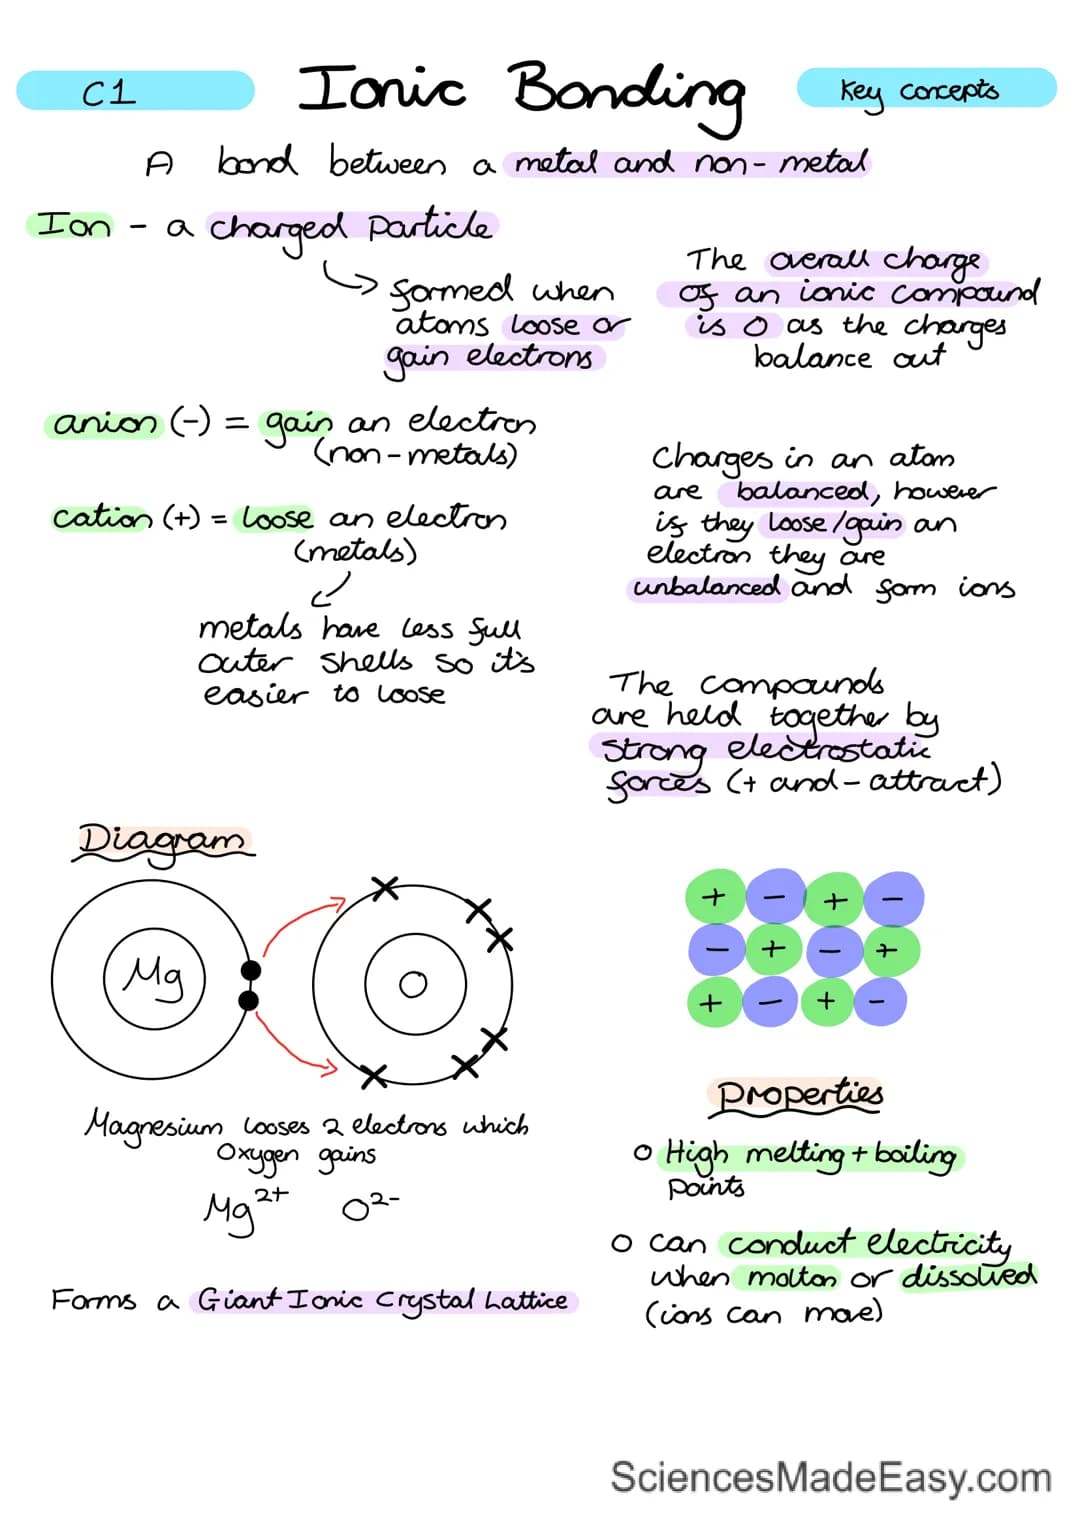 C1
Ionic Bonding
Key concepts
A bond between a metal and non-metal
Ion - a charged particle
formed when
atoms loose or
gain electrons
The overall charge
of an ionic compound
is 0 as the charges
balance out
anion (-) = gain an electron
(non-metals)
cation (+) = loose an electron
(metals)
metals have less full
outer shells so it's
easier to loose
Charges in an atom
are balanced, however
if they loose/gain an
electron they are
unbalanced and form ions
The compounds
are held together by
strong electrostatic
forces (+ and - attract)
Diagram
Mg
O
Magnesium looses 2 electrons which
Oxygen gains
Mg²⁺ O²⁻
Forms a Giant Ionic Crystal Lattice
+ - + -
- + - +
+ - + -
Properties
High melting + boiling
points
can conduct electricity
when molton or dissolved
(ions can move)
SciencesMadeEasy.com